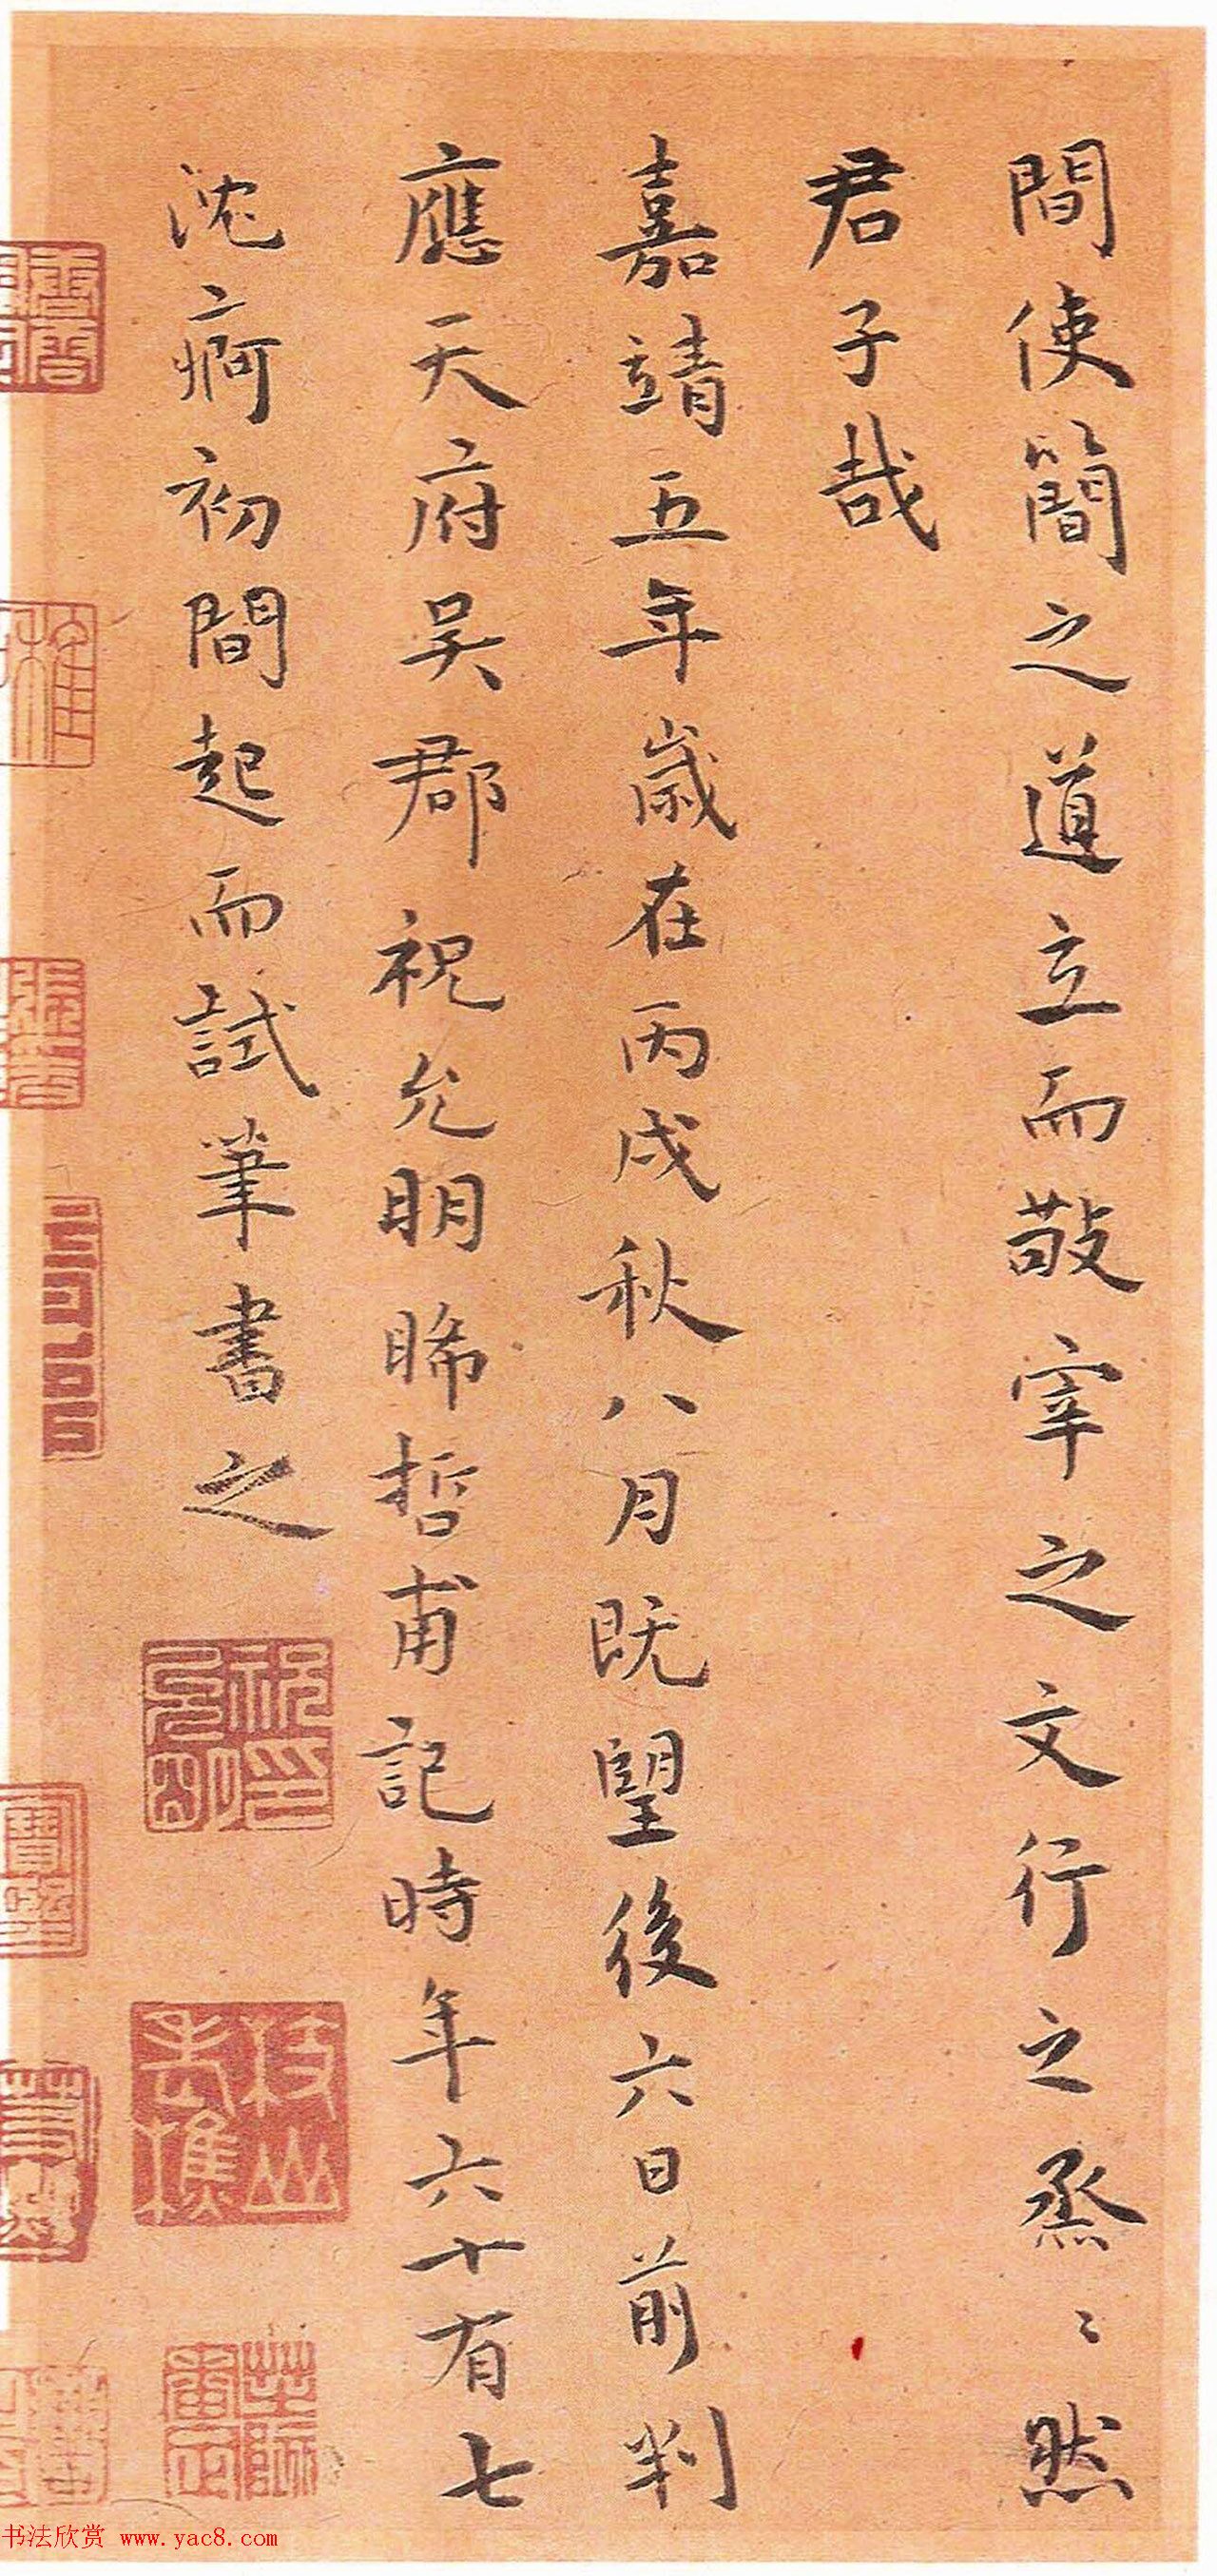 間使簡之道立而敬宰之文行之烝〻然
君子哉
嘉靖五年歲在丙戌秋八月既望後六日前判
應天府吳郡祝允明睎哲甫記時年六十有七
沈痾初間起而試筆書之
祝允明印
枝山老樵
书法欣赏 www.yac8.com